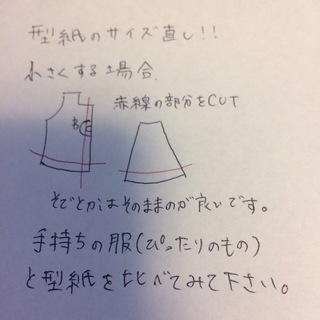 型紙のサイズ直し!!
小さくする場合.
赤線の部分をCUT
わ
そでとかはそのままのが良いです。
手持ちの服(ぴったりのもの)
と型紙を比べてみて下さい。